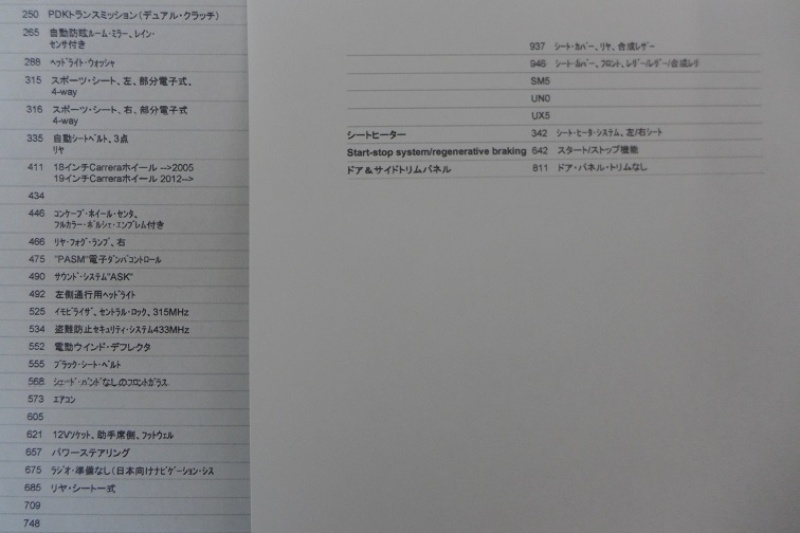 250 PDKトランスミッション(デュアル・クラッチ)
265 自動防眩ルーム・ミラー、レイン・
センサ付き
288 ヘッドライト・ウォッシャ
315 スポーツ・シート、左、部分電子式、
4-way
316 スポーツ・シート、右、部分電子式
4-way
335 自動シートベルト、3点
リヤ
411 18インチCarreraホイール -->2005
19インチCarreraホイール 2012-->
434
446 コンケーブ・ホイール・センタ、
フルカラー・ポルシェ・エンブレム付き
466 リヤ・フォグ・ランプ、右
475 "PASM"電子ダンパコントロール
490 サウンド・システム"ASK"
492 左側通行用ヘッドライト
525 イモビライザ、セントラル・ロック、315MHz
534 盗難防止セキュリティ・システム433MHz
552 電動ウインド・デフレクタ
555 ブラック・シート・ベルト
568 シェード・バンドなしのフロントガラス
573 エアコン
605
621 12Vソケット、助手席側、フットウェル
657 パワーステアリング
675 ラジオ・準備なし(日本向けナビゲーション・シス
685 リヤ・シート一式
709
748
937 シート・カバー、リヤ、合成レザー
946 シート・カバー、フロント、レザー/レザー/合成レザ
SM5
UN0
UX5
シートヒーター 342 シート・ヒータ・システム、左/右シート
Start-stop system/regenerative braking 642 スタート/ストップ機能
ドア&サイドトリムパネル 811 ドア・パネル・トリムなし